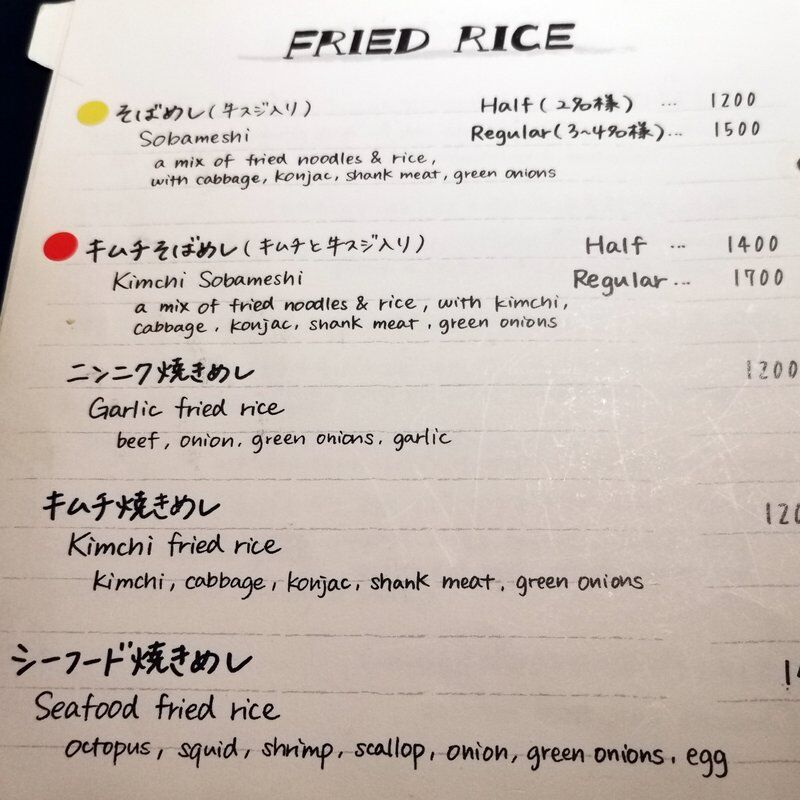 FRIED RICE
そばめし(牛スジ入り) Half(2名様) ... 1200
Sobameshi Regular(3~4名様)... 1500
a mix of fried noodles & rice,
with cabbage, konjac, shank meat, green onions
キムチそばめし(キムチと牛スジ入り) Half ... 1400
Kimchi Sobameshi Regular... 1700
a mix of fried noodles & rice, with kimchi,
cabbage, konjac, shank meat, green onions
ニンニク焼きめし 1200
Garlic fried rice
beef, onion, green onions, garlic
キムチ焼きめし
Kimchi fried rice
kimchi, cabbage, konjac, shank meat, green onions
シーフード焼きめし
Seafood fried rice
octopus, squid, shrimp, scallop, onion, green onions, egg